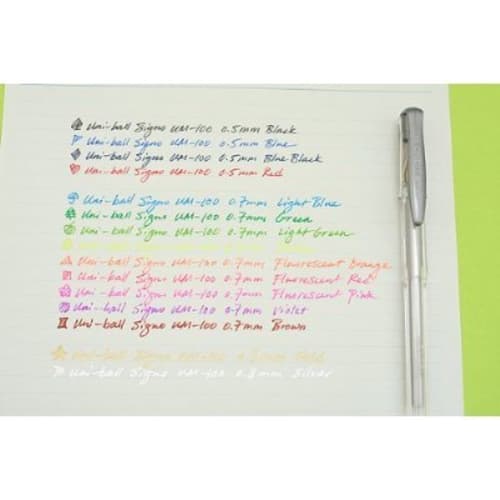 Uni-ball Signo UM-100 0.5mm Black
Uni-ball Signo UM-100 0.5mm Blue
Uni-ball Signo UM-100 0.5mm Blue-Black
Uni-ball Signo UM-100 0.5mm Red
Uni-ball Signo UM-100 0.7mm Light Blue
Uni-ball Signo UM-100 0.7mm Green
Uni-ball Signo UM-100 0.7mm Light Green
Uni-ball Signo UM-100 0.7mm Fluorescent Orange
Uni-ball Signo UM-100 0.7mm Fluorescent Red
Uni-ball Signo UM-100 0.7mm Fluorescent Pink
Uni-ball Signo UM-100 0.7mm Violet
Uni-ball Signo UM-100 0.7mm Brown
Uni-ball Signo UM-100 0.8mm Gold
Uni-ball Signo UM-100 0.8mm Silver